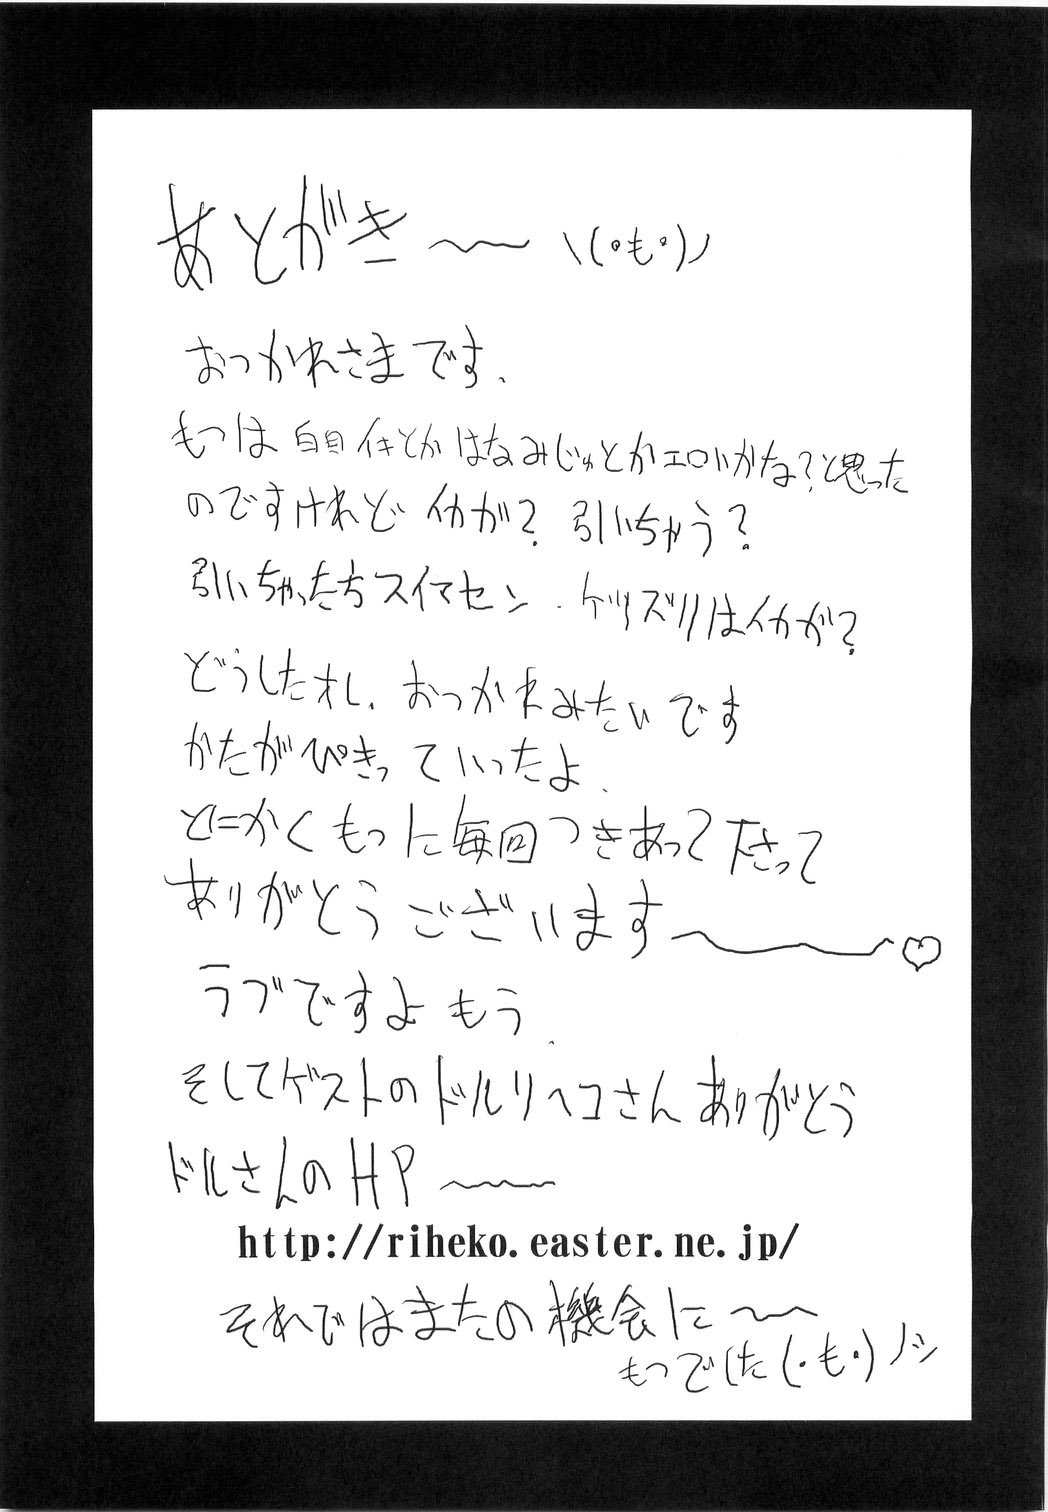 あとがき〜〜 \(°も°)ノ
おっかれさまです、
もつは 白目イキとか はなみじゅとかエロいかな?と思った
のですけれど イカが? 引いちゃう?
引いちゃったらスイマセン. ケツズリはイカが?
どうしたオレ、おっかれみたいです
かたがぴきっていったよ、
とにかく もつに毎回つきあって下さって
ありがとうございます〜〜♡
ラブですよ もう、
そしてゲストのドルリヘコさん ありがとう
ドルさんのHP〜〜
http://riheko.easter.ne.jp/
それではまたの機会に〜〜
もつでした(・も・)ノシ